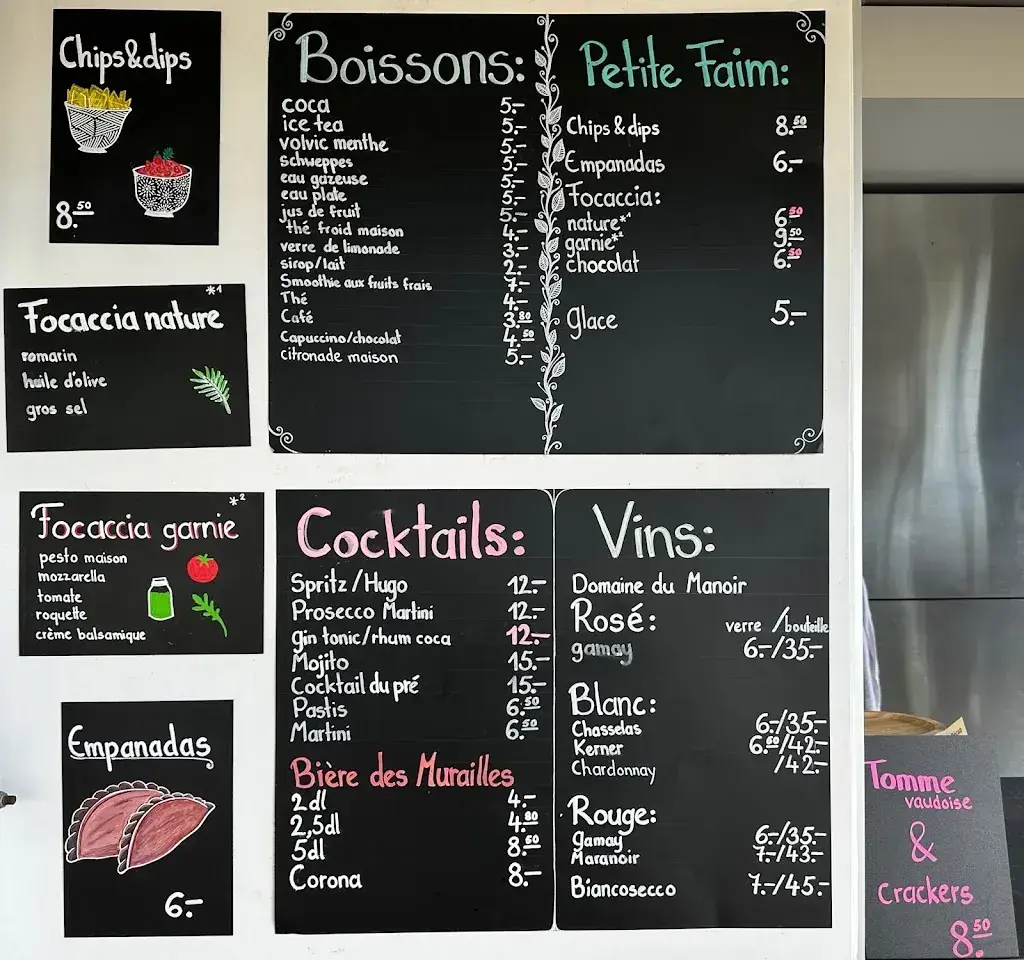 Chips&dips
8.50
Focaccia nature *1
romarin
huile d'olive
gros sel
Focaccia garnie *2
pesto maison
mozzarella
tomate
roquette
crème balsamique
Empanadas
6.-
Boissons:
coca 5.-
ice tea 5.-
volvic menthe 5.-
schweppes 5.-
eau gazeuse 5.-
eau plate 5.-
jus de fruit 5.-
thé froid maison 4.-
verre de limonade 3.-
sirop/lait 2.-
Smoothie aux fruits frais 7.-
Thé 4.-
Café 3.80
Capuccino/chocolat 4.50
citronade maison 5.-
Petite Faim:
Chips & dips 8.50
Empanadas 6.-
Focaccia:
nature*1 6.50
garnie*2 9.50
chocolat 6.50
glace 5.-
Cocktails:
Spritz/Hugo 12.-
Prosecco Martini 12.-
gin tonic/rhum coca 12.-
Mojito 15.-
Cocktail du pré 15.-
Pastis 6.50
Martini 6.50
Bière des Murailles
2dl 4.-
2,5dl 4.80
5dl 8.60
Corona 8.-
Vins:
Domaine du Manoir
Rosé: verre /bouteille
gamay 6.-/35.-
Blanc:
Chasselas 6.-/35.-
Kerner 6.50/42.-
Chardonnay /42.-
Rouge:
Gamay 6.-/35.-
Maranoir 7.-/43.-
Biancosecco 7.-/45.-
Tomme
vaudoise
&
crackers
8.50